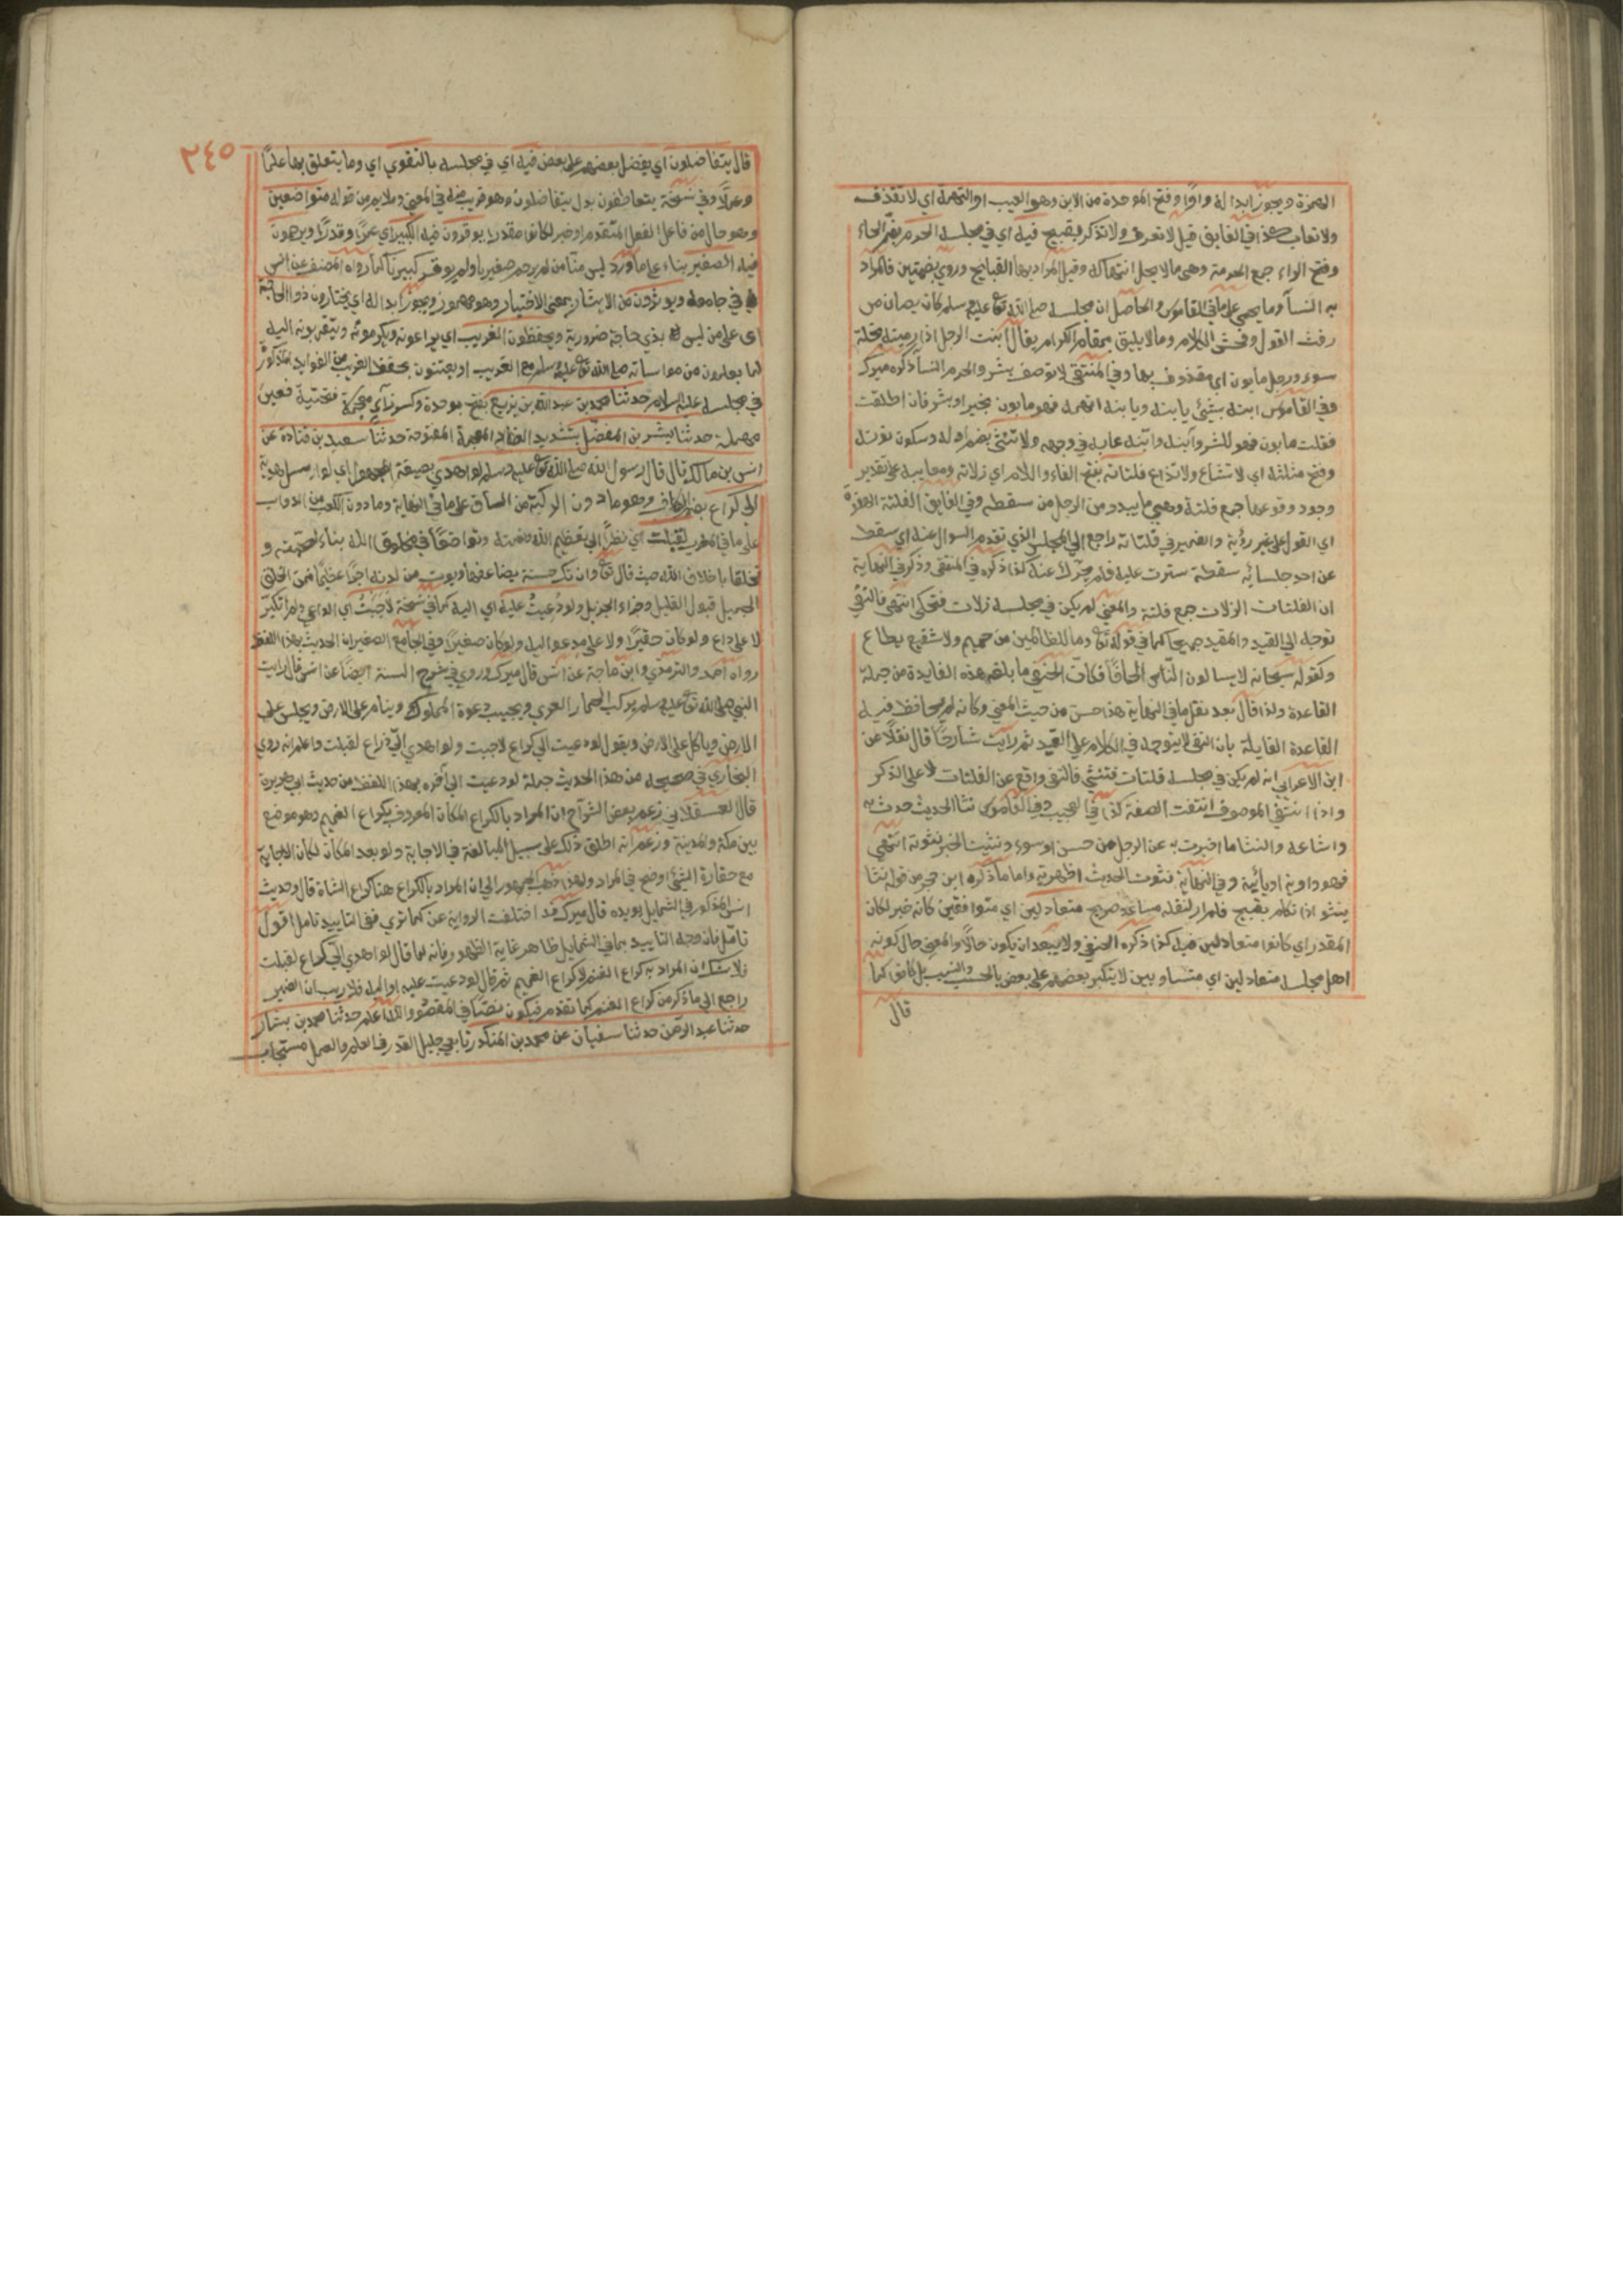 الهمزة ويجوز ابداله واوا وفتح الموحدة من الابن وهو العيب او التهمة اي لا تقذف
ولا تعاب كذا في الفايق قيل لا تعرف ولا تذكر بقبيح فيه اي في مجلسه الحرم بضم الحاء
وفتح الراء جمع الحرمة وهي ما لا يحل انتهاكه وقيل المراد بها القبايح وروي بضمتين فالمراد
به النسا وما يحمي على ما في القاموس والحاصل ان مجلسه صلى الله تع عليه وسلم كان يصان من
رفث القول وفحش الكلام وما لا يليق بمقام الكرام يقال ابنت الرجل اذا رميته بخلة
سوء ورجل مابون اي مقذوف بها وفي المنتقى لا توصف بشر والحرم النسا ذكره ميرك
وفي القاموس ابنه بشئ يابنه ويابنه اتهمه فهو مابون بخير او بشر فان اطلقت
فقلت مابون فهو للشر وابنه وابنه عابه في وجهه ولا تنثى بضم اوله وسكون نونه
وفتح مثلثه اي لا تشاع ولا تذاع فلتاته بفتح الفاء واللام اي زلاته ومعايبه على تقدير
وجود وقوعها جمع فلتة وهي ما يبدو من الرجل من سقطه وفي الفايق الفلتة الهفوة
اي القول على غير روية والضمير في فلتاته راجع الى المجلس الذي تقدم السوال عنه اي سقط
عن احد جلسائه سقطة سترت عليه فلم عنه كذا ذكره في المنتقى وذكر في النهاية
ان الفلتات الزلات جمع فلتة والمعنى لم يكن في مجلسه زلات فتحكى انتهى فالنفي
توجه الى القيد والمقيد جميعا كما في قوله تع وما للظالمين من حميم ولا شفيع يطاع
ولقوله سبحانه لا يسالون الناس الحافا فكان الحنفي ما بلغه هذه الفايدة من جملة
القاعدة ولذا قال بعد نقل ما في النهاية هذا حسن من حيث المعنى وكانه لم يحافظ فيه
القاعدة القايلة بان النفي لا يتوجه في الكلام على القيد ثم رايت شارحا قال نقلا عن
ابن الاعرابي انه لم يكن في مجلسه فلتات فتنثى فالنفي واقع عن الفلتات لا على الذكر
واذا انتفى الموصوف انتفت الصفة كذا في وفي القاموس نثا الحديث حدث به
واشاعه والنثا ما اخبرت به عن الرجل من حسن او سوء ونثيت الخبر نثوته انتهى
فهو داوية او يائية وفي النهاية نثوت الحديث اظهرته واما ما ذكره ابن حجر من قوله نثا
ينثو اذا تكلم بقبيح فلم ار لنقله مساعد صريح متعادلين اي متوافقين كانه خبر لكان
المقدر اي كانوا متعادلين فيه كذا ذكره الحنفي ولا يبعد ان يكون حالا والمعنى حال كونه
اهل مجلسه متعادلين اي متساويين لا يتكبر بعضهم على بعض بالحسب والنسب بل كانوا كما
قال
٢٤٥
قال يتفاضلون اي يفضل بعضهم على بعض فيه اي في مجلسه بالتقوى اي وما يتعلق بها علما
وعملا وفي نسخة يتعاطفون بدل يتفاضلون وهو قريب منه في المعنى وملايم من قوله متواضعين
وهو حال من فاعل الفعل المتقدم او خبر لكانوا مقدرا يوقرون فيه الكبير اي عمرا وقدرا ويرحمون
فيه الصغير بناء على ما ورد ليس منا من لم يرحم صغيرنا ولم يوقر كبيرنا كما رواه المصنف عن انس
في جامعه ويوثرون من الايثار بمعنى الاختيار وهو مهموز ويجوز ابداله اي يختارون ذوا الحاجة
اى على من ليس بذي حاجة ضرورية ويحفظون الغريب اي يراعونه ويكرمونه ويتقربونه اليه
لما يعلمون من مواساته صلى الله تع عليه وسلم مع الغريب او يعتنون بحفظ الغريب من الفوايد المذكورة
في مجلسه عليه السلام حدثنا محمد بن عبد الله بن بزيع بفتح موحدة وكسر زاي معجمة فتحتية فعين
مهملة حدثنا بشر بن المفضل بتشديد الضاد المعجمة المفتوحة حدثنا سعيد بن قتادة عن
انس بن مالك قال قال رسول الله صلى الله تع عليه وسلم لو اهدي بصيغة المجهول اي لو ارسل هدية
الي كراع بضم الكاف وهو ما دون الركبة من الساق على ما في النهاية وما دون الكعب من الدواب
على ما في المغرب لقبلت اي نظرا الى تعظيم الله نعمته وتواضعا في مخلوق الله بناء و
تخلقا باخلاق الله حيث قال تع وان تك حسنة يضاعفها ويوت من لدنه اجرا عظيما فمن الخلق
الجميل قبول القليل وجزاء الجزيل ولو دعيت عليه اي اليه كما في نسخة لاجبت اي الداعي ولم اتكبر
لا على داع ولو كان حقيرا ولا على مدعو اليه ولو كان صغيرا وفي الجامع الصغير ان الحديث بهذا اللفظ
رواه احمد والترمذي وابن ماجة عن انس قال ميرك وروي في شرح السنة ايضا عن انس قال رايت
النبي صلى الله تع عليه وسلم يركب الحمار العري ويجيب دعوة المملوك وينام على الارض ويجلس على
الارض وياكل على الارض ويقول لو دعيت الى كراع لاجبت ولو اهدي الي ذراع لقبلت واعلم انه روي
البخاري في صحيحه من هذا الحديث جملة لو دعيت الى آخره بهذا اللفظ من حديث ابي هريرة
قال العسقلاني زعم بعض الشراح ان المراد بالكراع المكان المعروف بكراع الغميم وهو موضع
بين مكة والمدينة وزعم انه اطلق ذلك على سبيل المبالغة في الاجابة ولو بعد المكان لكان الاجابة
مع حقارة الشئ اوضح في المراد ولهذا ذهب الجمهور الى ان المراد بالكراع هنا كراع الشاة قال وحديث
انس المذكور في الشمايل يويده قال ميرك قد اختلفت الرواية عن كما ترى ففى التاييد تامل اقول
تامل فان وجه التاييد بما في الشمايل ظاهر غاية الظهور فانه لما قال لو اهدي الي كراع لقبلت
فلا شك ان المراد به كراع الغنم لا كراع الغميم ثم قال لو دعيت عليه او اليه فلا ريب ان الضمير
راجع الى ما ذكر من كراع الغنم كما تقدم فيكون نصا في المقصود والله اعلم حدثنا محمد بن بشار
حدثنا عبد الرحمن حدثنا سفيان عن محمد بن المنكدر تابعي جليل القدر في العلم والعمل مستجاب